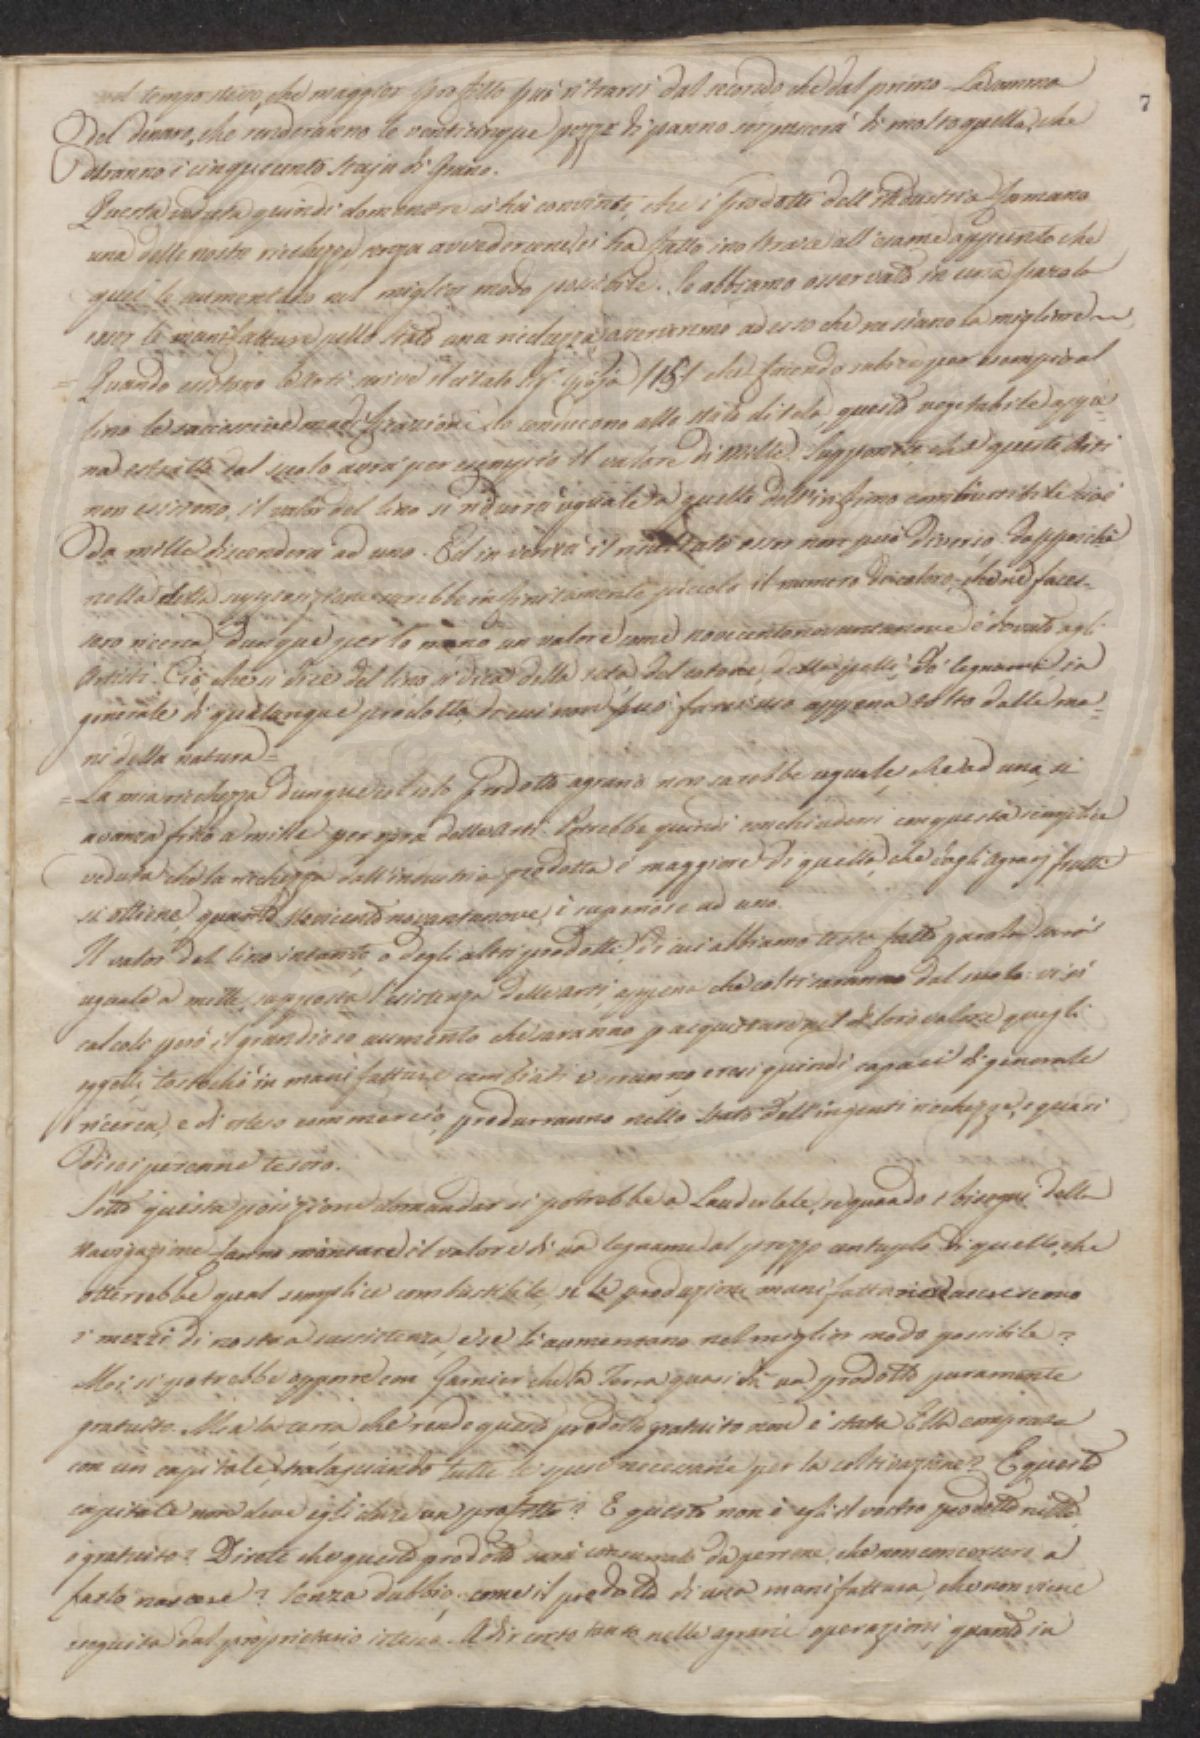 7
el tempo stesso, che maggior profitto può ritrarsi dal secondo che dal primo. La somma
del denaro, che renderanno le venticinque pezze di panno sorpasserà di molto quella, che
daranno i cinquecento staja di Grano.
Questa veduta quindi domentre ci ha convinto, che i prodotti dell'industria formano
una delle nostre ricchezze, senza avvedercene, ci ha fatto inoltrare all'esame appunto che
quei le aumentano nel miglior modo possibile. Se abbiamo osservato in una parola
esser le manifatture nello Stato una ricchezza, osserveremo adesso che ne siano la migliore
= Quando esistono le arti, scrive il citato Sig.r Gioja /15/ che facendo subire per esempio al
lino le successive modificazioni lo conducono allo stato di tela, questo vegetabile appe=
na estratto dal suolo avrà per esempio il valore di mille. Supponete, che queste Arti
non esistono, il valor del lino si ridurrà uguale a quello dell'infimo combustibile cioè
da mille discenderà ad uno. Ed in verità il risultato esser non può diverso, dappoichè
nella detta supposizione sarebbe infinitamente piccolo il numero di coloro, che ne faces=
sero ricerca, dunque per lo meno un valore come novecentonovantanove è dovuto agli
Artisti. Ciò, che si dice del lino si dica della seta, del cotone, delle pelli, de' legnami, in
generale di qualunque prodotto, di cui non può farsi uso appena tolto dalle ma=
ni della natura =
= La mia ricchezza dunque col solo prodotto agrario non sarebbe uguale, che ad uno, si
avanza fino a mille per opra delle Arti. Potrebbe quindi conchiudersi con questa semplice
veduta che la ricchezza dall'industria prodotta è maggiore di quella, che dagli agrarj frutti
si ottiene, quanto novecentonovantanove è superiore ad uno.
Il valor del lino intanto, e degli altri prodotti, di cui abbiamo testè fatto parola sarà
uguale a mille, supposta l'esistenza delle Arti, appena che colti saranno dal suolo: vi si
calcoli però il grandioso aumento che saranno p acquistare nel di loro valore quegli
oggetti, tostochè in manifatture cambiati verranno, e resi quindi capaci di generale
ricerca, e di esteso commercio, produrranno nello Stato dell'ingenti ricchezze, e quasi
dissi perenne tesoro.
Sotto questa posizione domandar si potrebbe a Lauderdale, se quando i bisogni della
Navigazione fanno montare il valore di un legname al prezzo centuplo di quello, che
otterrebbe qual semplice combustibile, se le produzioni manifatturiere accrescono
i mezzi di nostra sussistenza, e se li aumentano nel miglior modo possibile?
Mi si potrebbe opporre con Garnier che la Terra quasi dà un prodotto puramente
gratuito. Ma la terra che rende questo prodotto gratuito non è stata Ella comprata
con un capitale, tralasciando tutte le spese necessarie per la coltivazione? E questo
capitale non deve egli dare un profitto? E questo non è egli il vostro prodotto netto,
e gratuito? Direte che questo prodotto sarà consumato da persone, che non concorsero a
farlo nascere? Senza dubbio, come il prodotto di una manifattura, che non viene
eseguita dal proprietario istesso. A dir certo tanto nelle agrarie operazioni, quanto in